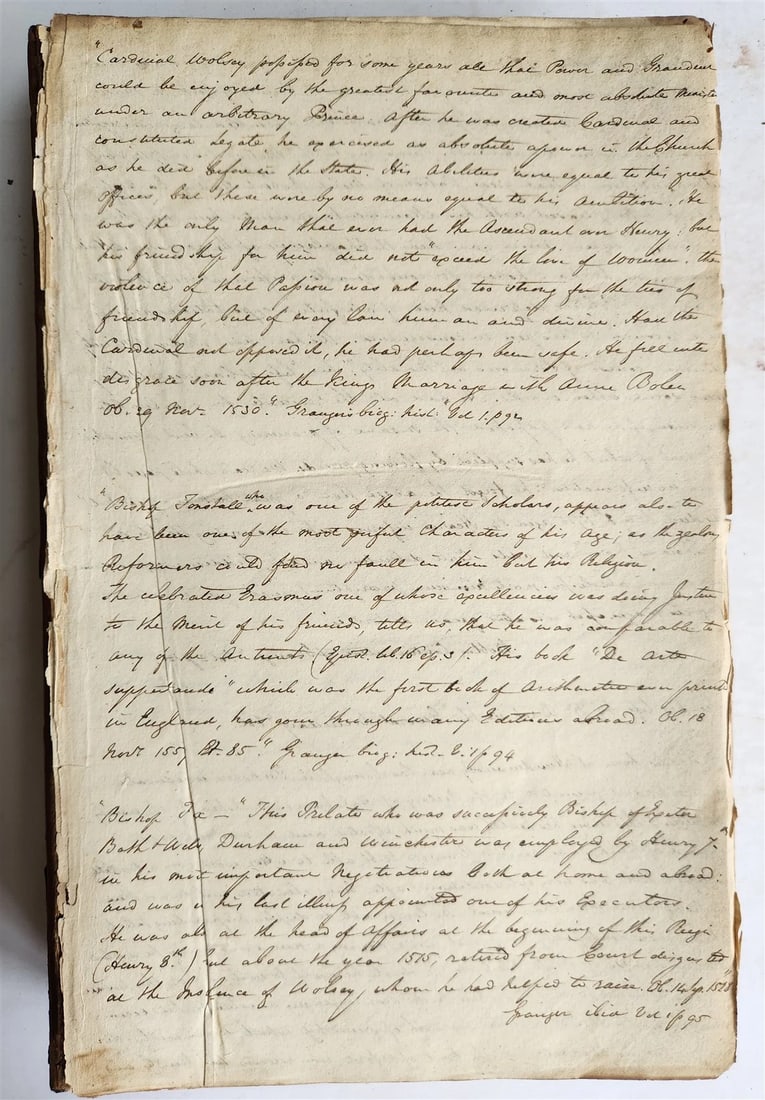 "Cardinal Wolsey possessed for some years all that Power and Grandeur
could be enjoyed by the greatest favourite and most absolute Minister
under an arbitrary Prince. After he was created Cardinal and
constituted Legate he exercised as absolute a power in the Church
as he did before in the State. His Abilities were equal to his great
offices, but these were by no means equal to his Ambition. He
was the only Man that ever had the Ascendant over Henry: but
his friendship for him did not "exceed the love of Women". the
violence of that Passion was not only too strong for the ties of
friendship, but of every law human and divine. Had the
Cardinal not opposed it, he had perhaps been safe. He fell into
disgrace soon after the Kings Marriage with Anne Bolen
Ob. 29 Novr. 1530." Grangers biog: hist: Vol 1. p 92
"Bishop Tonstall who was one of the politest Scholars, appears also to
have been one of the most perfect Characters of his Age; as the zealous
Reformers could find no fault in him but his Religion.
The celebrated Erasmus one of whose excellencies was doing Justice
to the Merit of his friends, tells us, that he was comparable to
any of the Antients (Epist. lib. 16 ep. 3). His book "De Arte
supputandi" which was the first book of Arithmetic ever printed
in England, has gone through many Editions abroad. Ob. 18
Novr. 1559 Æt. 85." Granger biog: hist. v. 1 p 94
"Bishop Fox – "This Prelate who was successively Bishop of Exeter
Bath & Wells, Durham and Winchester was employed by Henry 7th
in his most important Negotiations both at home and abroad:
and was in his last illness appointed one of his Executors.
He was also at the head of Affairs at the beginning of this Reign
(Henry 8th.) but about the year 1515, retired from Court disgusted
at the Insolence of Wolsey, whom he had helped to raise. Ob. 14 Sep. 1528"
Granger ibid Vol 1 p 95